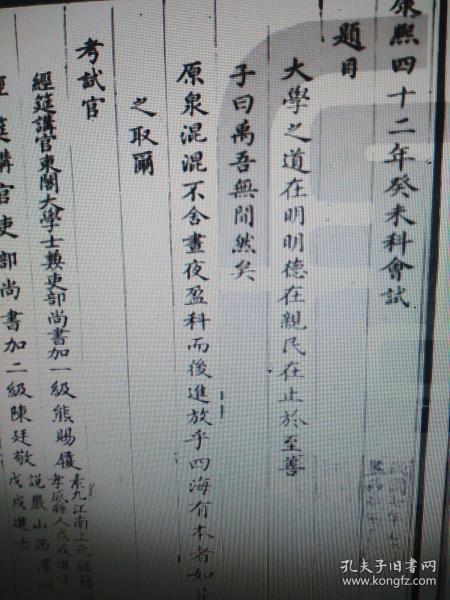 康熙四十二年癸未科會試
題目
大學之道在明明德在親民在止於至善
子曰禹吾無間然矣
原泉混混不舍晝夜盈科而後進放乎四海有本者如
之取爾
考試官
經筵講官東閣大學士兼吏部尚書加一級熊賜履
素九江南上元縣籍
孝感縣人戊戌進士
經筵講官吏部尚書加二級陳廷敬
說巖山西澤州
戊戌進士
孔夫子旧书网
www.kongfz.com